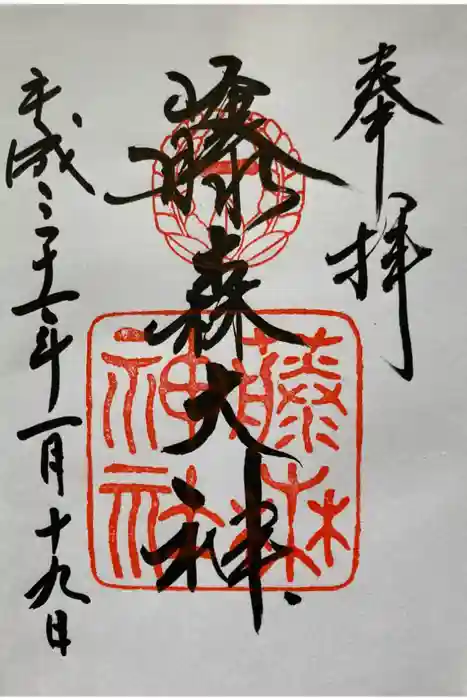 奉拝
藤森大神
平成三十一年一月十九日
藤森
神社